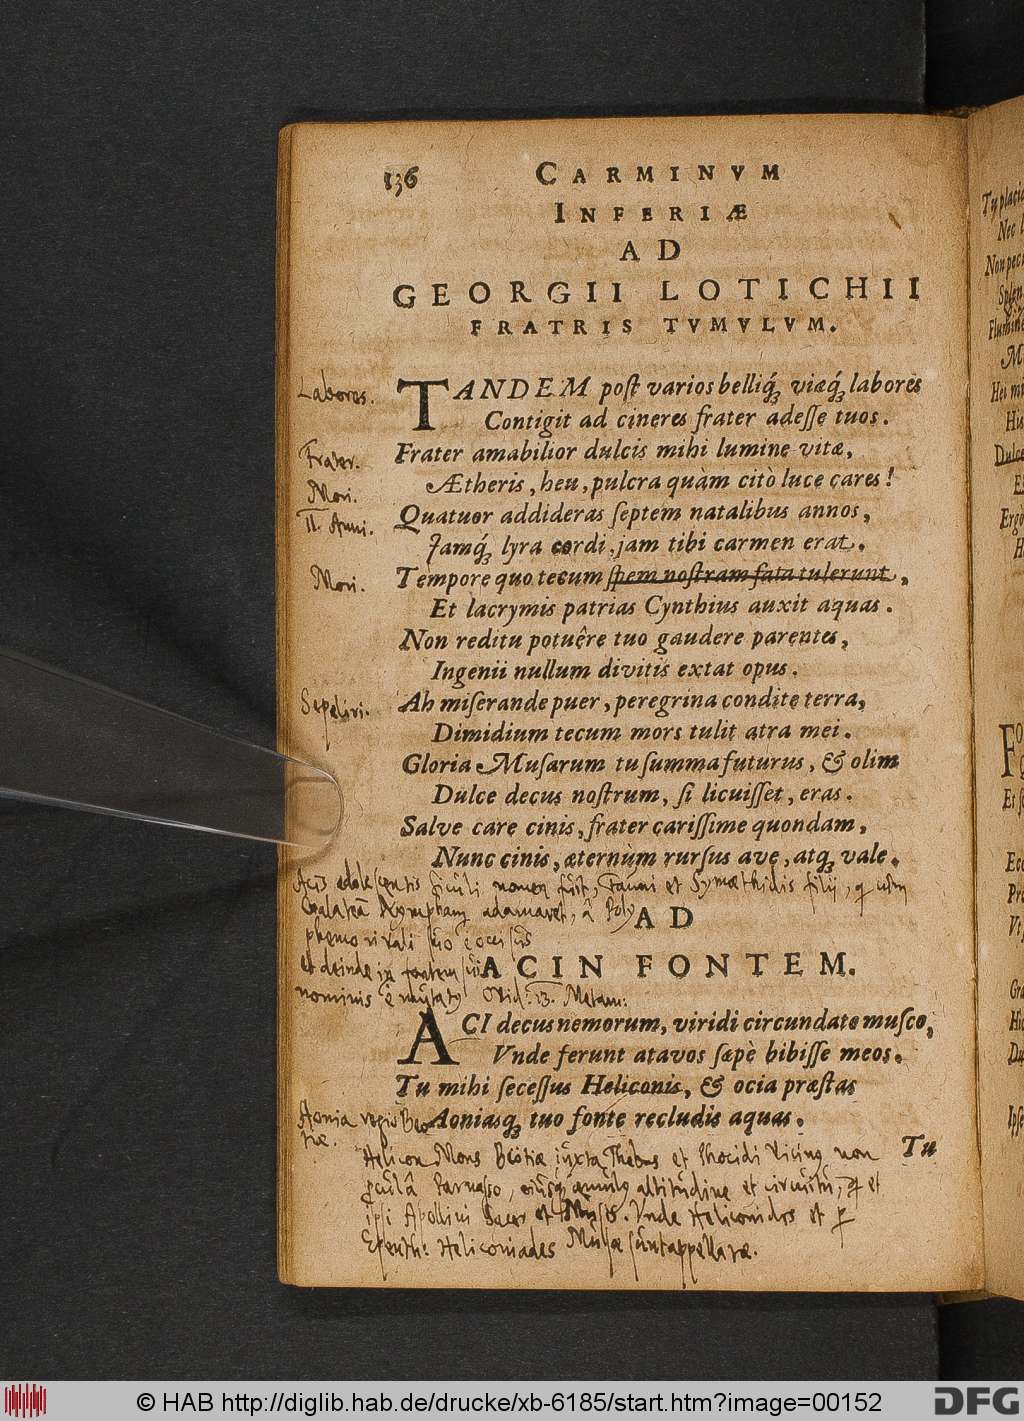 136 CARMINVM
INFERIÆ
AD
GEORGII LOTICHII
FRATRIS TVMVLVM.
Labores.
TANDEM post varios belliq́; viæq́; labores
Contigit ad cineres frater adesse tuos.
Frater.
Frater amabilior dulcis mihi lumine vitæ,
Mori.
Ætheris, heu, pulcra quàm citò luce cares!
II. Anni.
Quatuor addideras septem natalibus annos,
Jamq́; lyra cordi, jam tibi carmen erat.
Mori.
Tempore quo tecum spem nostram fata tulerunt,
Et lacrymis patrias Cynthius auxit aquas.
Non reditu potuêre tuo gaudere parentes,
Ingenii nullum divitis extat opus.
Sepeliri.
Ah miserande puer, peregrina condite terra,
Dimidium tecum mors tulit atra mei.
Gloria Musarum tu summa futurus, & olim
Dulce decus nostrum, si licuisset, eras.
Salve care cinis, frater carissime quondam,
Nunc cinis, æternùm rursus ave, atq; vale.
Acis adolescentis siculi nomen fuit, Fauni et Symæthidis filii, q cum
Galateā Nympham adamaret, â Poly
phemo rivali suo ē occisus
et deinde in fontem sui
nominis ē mutatus Ovid: 13. Metam:
AD
ACIN FONTEM.
ACI decus nemorum, viridi circundate musco,
Vnde ferunt atavos sæpè bibisse meos.
Tu mihi secessus Heliconis, & ocia præstas
Aonia regio Beo
tiæ.
Aoniasq; tuo fonte recludis aquas.
Tu
Helicon Mons Beotiæ juxta Thebas et Phocidi vicinus non
procul â Parnasso, altitudine et circuitu, et
ipsi Apollini Sacer et Musis. Unde Heliconides et per
Epenth: Heliconiades Musæ sunt appellatæ.
Tu placi
Nec l
Non pec
Splen
Flumin
M
Hei mi
His
Dulce
E
Ergo
H
Fo
Et s
Ecc
Pr
Vt
Gra
Hi
Du
Ipse
© HAB http://diglib.hab.de/drucke/xb-6185/start.htm?image=00152
DFG